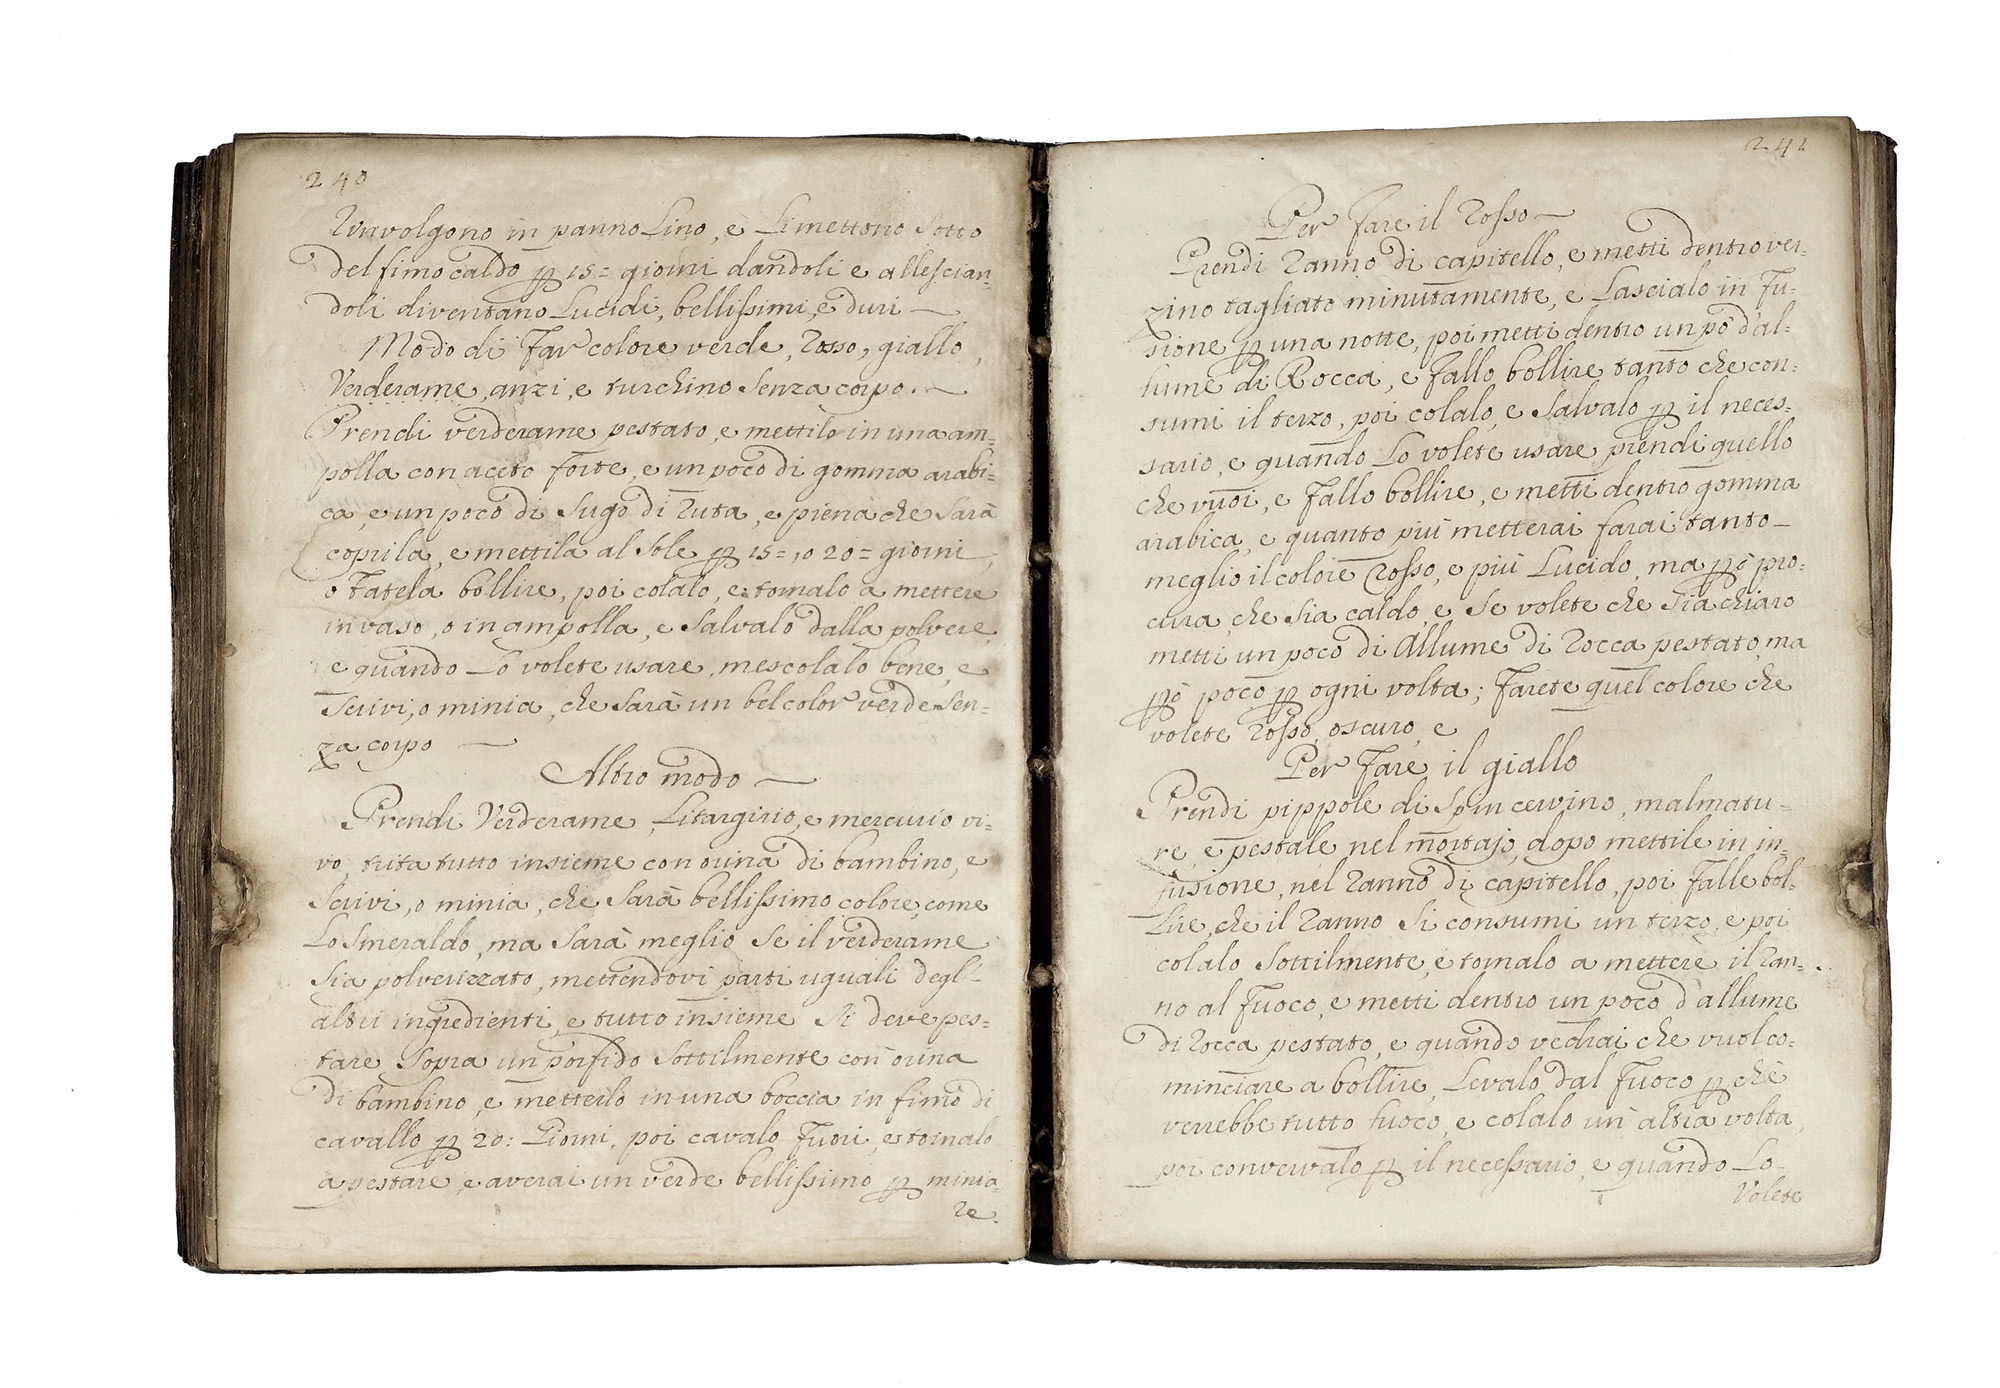 240
Rinvolgono in panno Lino, e Li mettono Sotto
del fimo caldo p 15= giorni dandoli e allescian=
doli diventano Lucidi, bellissimi, e duri —
Modo di Far colore verde, Rosso, giallo,
Verderame, anzi, e turchino Senza corpo. —
Prendi verderame pestato, e mettilo in una am=
polla con aceto forte, e un poco di gomma arabi=
ca, e un poco di Sugo di Ruta, e piena che Sarà
coprila, e mettila al Sole p 15=, o 20= giorni,
o Fatela bollire, poi colalo, e tornalo a mettere
in vaso, o in ampolla, e Salvalo dalla polvere,
e quando Lo volete usare, mescolalo bene, e
Scrivi, o minia, che Sarà un bel color verde Sen=
za corpo —
Altro modo —
Prendi Verderame, Litargirio, e mercurio vi=
vo, trita tutto insieme con orina di bambino, e
Scrivi, o minia, che Sarà bellissimo colore, come
Lo Smeraldo, ma Sarà meglio Se il verderame
Sia polverizzato, mettendovi parti uguali degl'
altri ingredienti, e tutto insieme Si deve pes=
tare Sopra un porfido Sottilmente con orina
di bambino, e metterlo in una boccia in fimo di
cavallo p 20: Giorni, poi cavalo Fuori, e tornalo
a pestare, e averai un verde bellissimo p minia=
re.
241
Per Fare il Rosso —
Prendi Ranno di capitello, e metti dentro ver=
zino tagliato minutamente, e Lascialo in Fu=
sione p una notte, poi metti dentro un pò d'al=
lume di Rocca, e Fallo bollire tanto che con=
sumi il terzo, poi colalo, e Salvalo p il neces=
sario, e quando Lo volete usare prendi quello
che vuoi, e Fallo bollire, e metti dentro gomma
arabica, e quanto più metterai farai tanto —
meglio il colore Rosso, e più Lucido, ma pò pro=
cura, che Sia caldo, e Se volete che Sia chiaro
metti un poco di Allume di Rocca pestato, ma
pò poco p ogni volta; Farete quel colore che
volete Rosso, oscuro, e
Per Fare il giallo
Prendi pippole di Spin cervino, mal matu=
re, e pestale nel mortajo, dopo mettile in in=
fusione, nel Ranno di capitello, poi Falle bol=
Lire, che il Ranno Si consumi un terzo, e poi
colalo Sottilmente, e tornalo a mettere il Ran=
no al Fuoco, e metti dentro un poco d'allume
di Rocca pestato, e quando vedrai che vuol co=
minciare a bollire, Levalo dal Fuoco p chè
verrebbe tutto fuoco, e colalo un' altra volta,
poi conservalo p il necessario, e quando Lo=
Volete